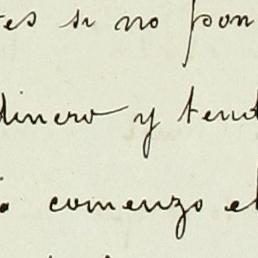 tes si no pon
dinero y tend
comenzo el